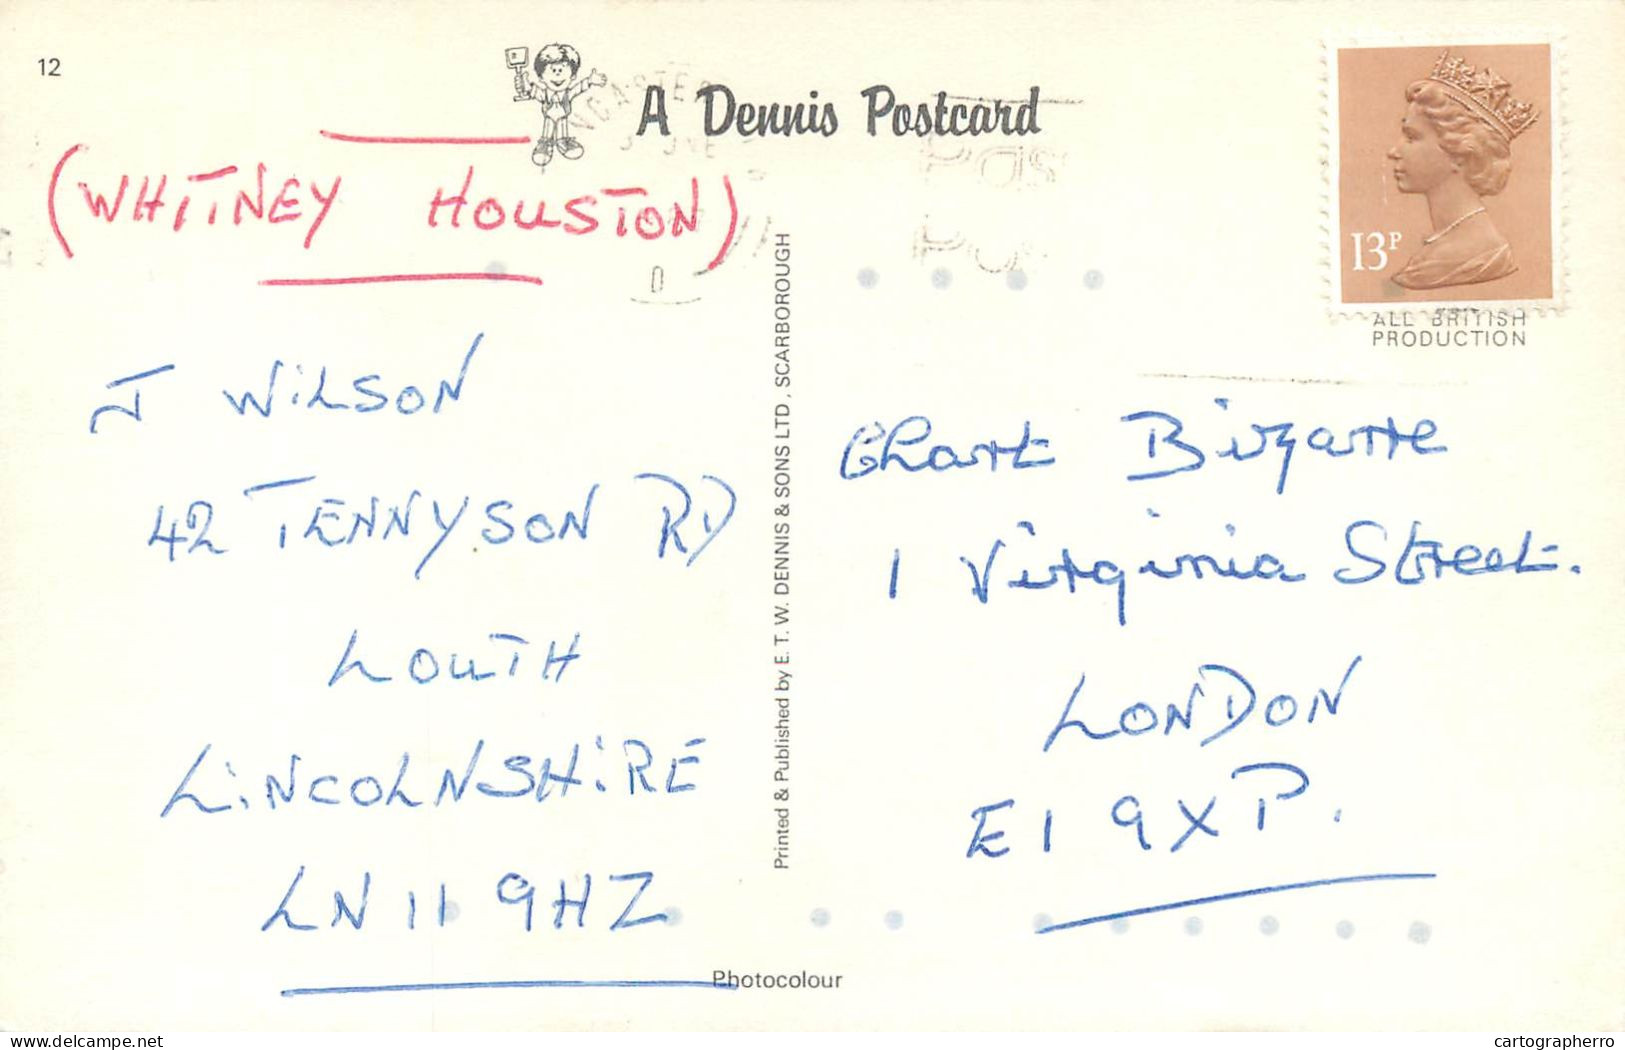 12
A Dennis Postcard
(WHITNEY HOUSTON)
J WILSON
42 TENNYSON RD
LOUTH
LINCOLNSHIRE
LN11 9HZ
Printed & Published by E. T. W. DENNIS & SONS LTD., SCARBOROUGH
13P
ALL BRITISH
PRODUCTION
Chart Bizarre
1 Virginia Street.
LONDON
E1 9XP.
Photocolour
delcampe.net
cartographerro